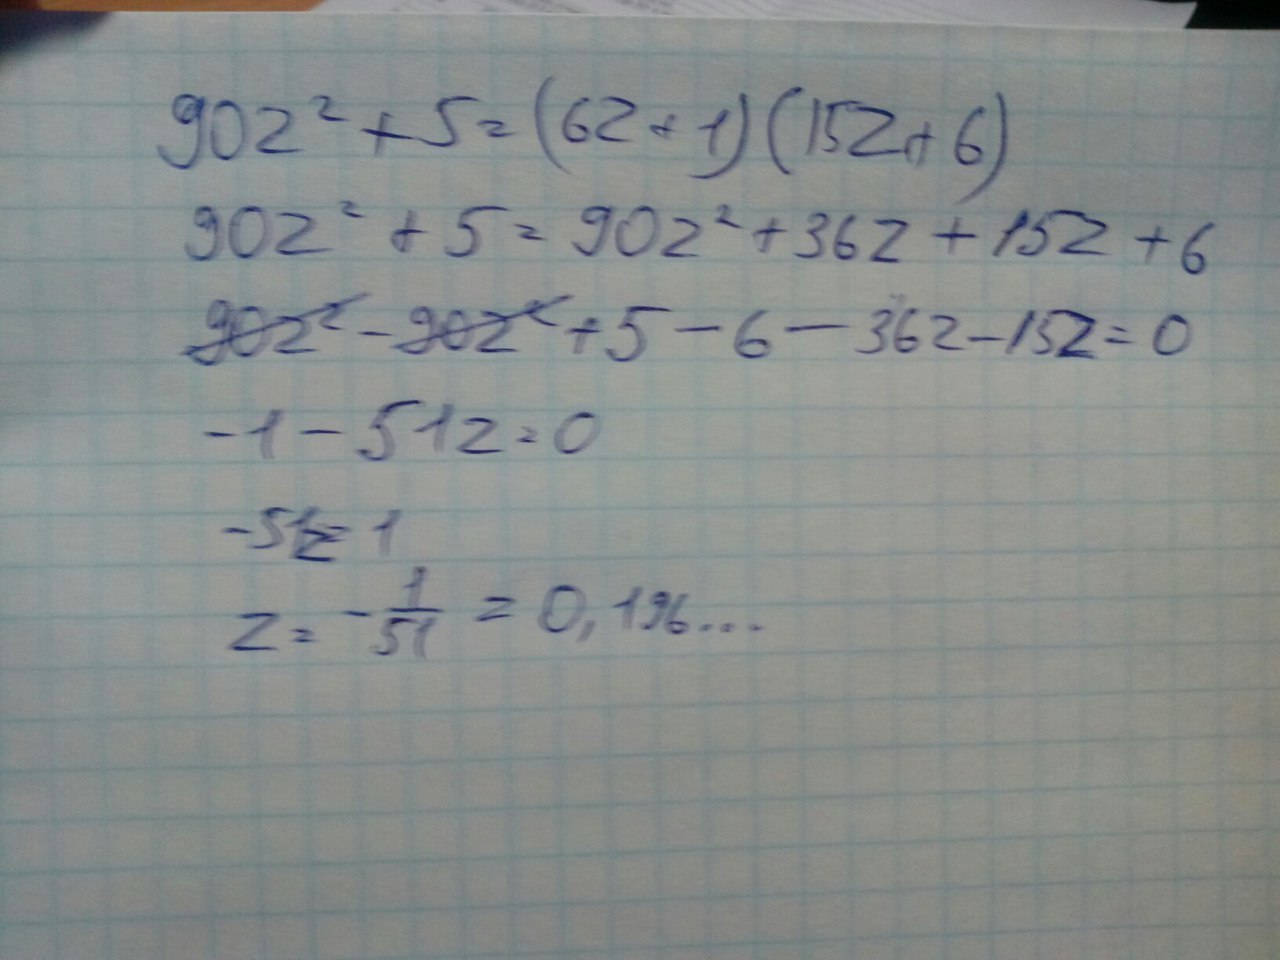 90z² + 5 = (6z + 1)(15z + 6)
90z² + 5 = 90z² + 36z + 15z + 6
90z² - 90z² + 5 - 6 - 36z - 15z = 0
-1 - 51z = 0
-51z = 1
z = -1/51 = 0,196...